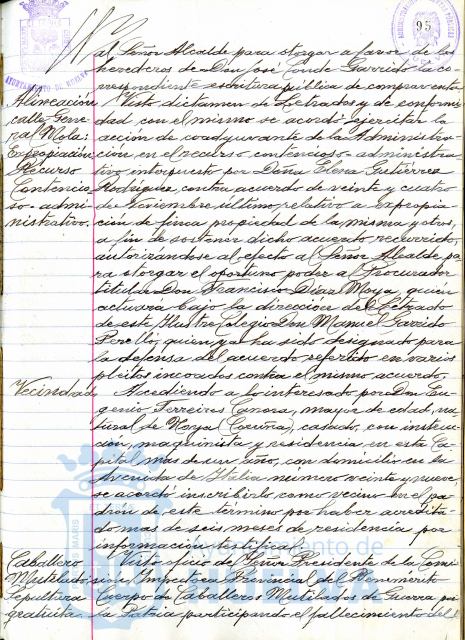 95
AYUNTAMIENTO DE HUELVA
al Señor Alcalde para otorgar a favor de los
herederos de Don José Conde Garrido la co-
rrespondiente escritura pública de compraventa.
Alineación
calle Gene-
ral Mola:
Expropiación
Recurso
Contencio-
so-admi-
nistrativo.
Visto dictamen de Letrados y de conformi-
dad con el mismo se acordó ejercitar la
acción de coadyuvante de la Administra-
ción, en el recurso contencioso-administra-
tivo interpuesto por Doña Elena Gutiérrez
Rodríguez, contra acuerdo de veinte y cuatro
de Noviembre último, relativo a expropia-
ción de finca propiedad de la misma y otros,
a fin de sostener dicho acuerdo recurrido,
autorizándose al efecto al Señor Alcalde pa-
ra otorgar el oportuno poder al Procurador
titular Don Francisco Díaz Moya, quién
actuará bajo la dirección del Letrado
de este Ilustre Colegio Don Manuel Garrido
Perelló, quien ya ha sido designado para
la defensa del acuerdo referido en varios
pleitos incoados contra el mismo acuerdo.
Vecindad
Accediendo a lo interesado por Don Eu-
genio Ferreiros Canosa, mayor de edad, na-
tural de Noya (Coruña), casado, con instruc-
ción, maquinista y residencia en esta Ca-
pital más de un año, con domicilio en la
Avenida de Italia número veinte y nueve,
se acordó inscribirlo como vecino en el pa-
drón de este término por haber acredita-
do más de seis meses de residencia por
información testifical.
Caballero
Mutilado
Sepultura
gratuita.
Visto oficio del Señor Presidente de la Comi-
sión Inspectora Provincial del Benemérito
Cuerpo de Caballeros Mutilados de Guerra por
la Patria participando el fallecimiento del
Ayuntamiento de
HUELVA